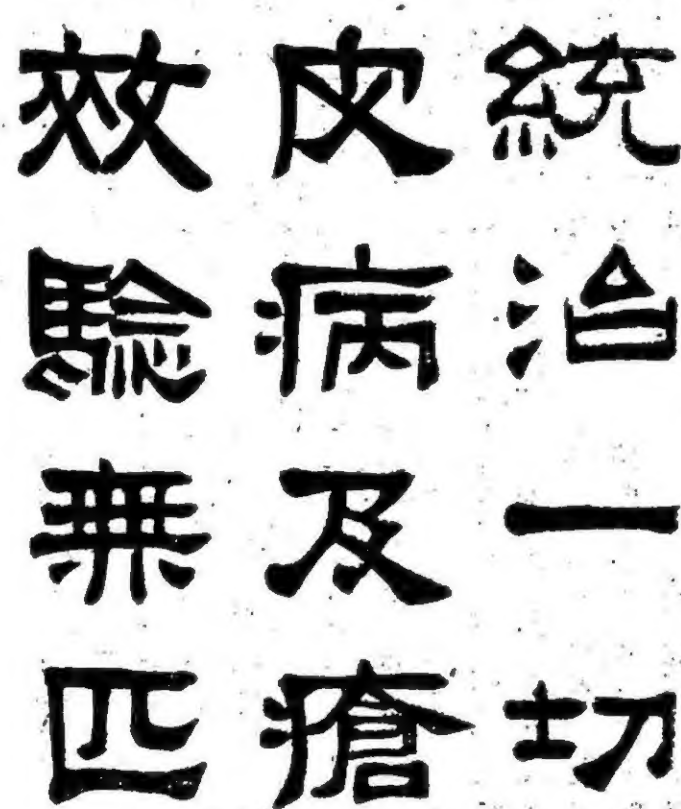 統治一切
皮病及瘡
效騐無匹